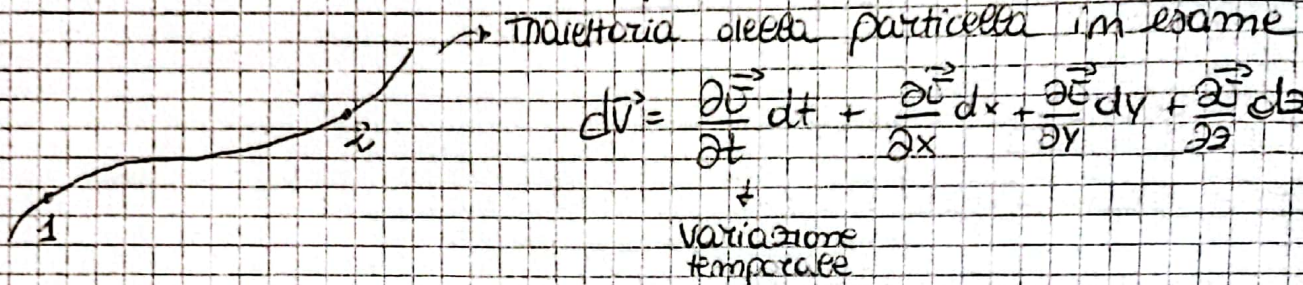 → Traiettoria della particella in esame
d\vec{v} = \frac{\partial \vec{v}}{\partial t} dt + \frac{\partial \vec{v}}{\partial x} dx + \frac{\partial \vec{v}}{\partial y} dy + \frac{\partial \vec{v}}{\partial z} dz
1 2
variazione
temporale